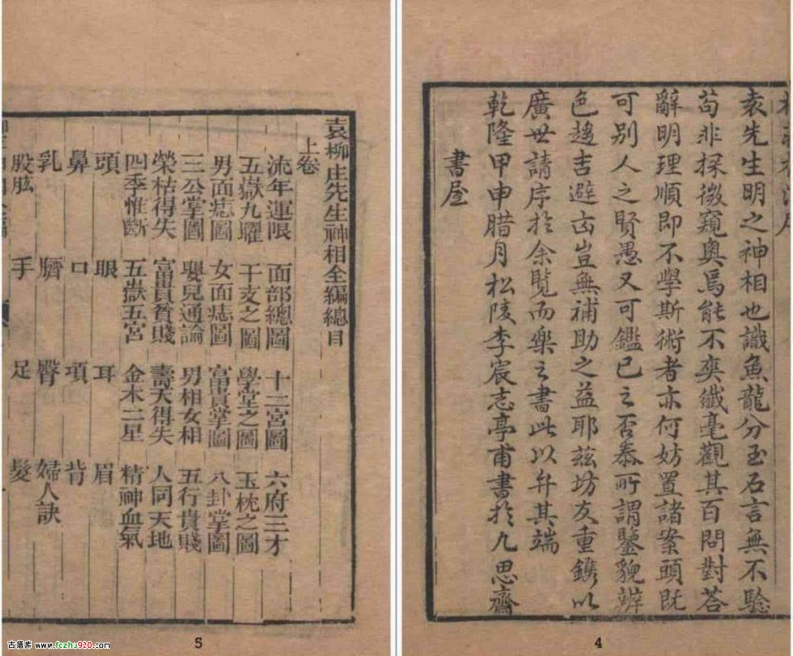 袁先生明之神相也識魚龍分玉石言無不驗
苟非探微窺奧焉能不爽纖毫觀其百問對荅
辭明理順即不學斯術者亦何妨置諸案頭既
可別人之賢愚又可鑑己之否泰所謂鑒貌辨
色趨吉避凶豈無補助之益耶茲坊友重鐫以
廣世請序於余覽而樂之書此以弁其端
乾隆甲申腊月松陵李宸志亭甫書於九思齋
書屋
4
袁柳庄先生神相全編總目
上卷
流年運限 面部總圖 十二宮圖 六府三才
五嶽九曜 干支之圖 學堂之圖 玉枕之圖
男面痣圖 女面痣圖 富貴掌圖 八卦掌圖
三公掌圖 嬰兒通論 男相女相 五行貴賤
榮枯得失 富貴貧賤 壽夭得失 人同天地
四季惟斷 五嶽五宮 金木二星 精神血氣
頭 眼 耳 眉
鼻 口 項 背
乳 臍 臀 婦人訣
股肱 手 足 髮
5
古籍库 www.fczhu920.com